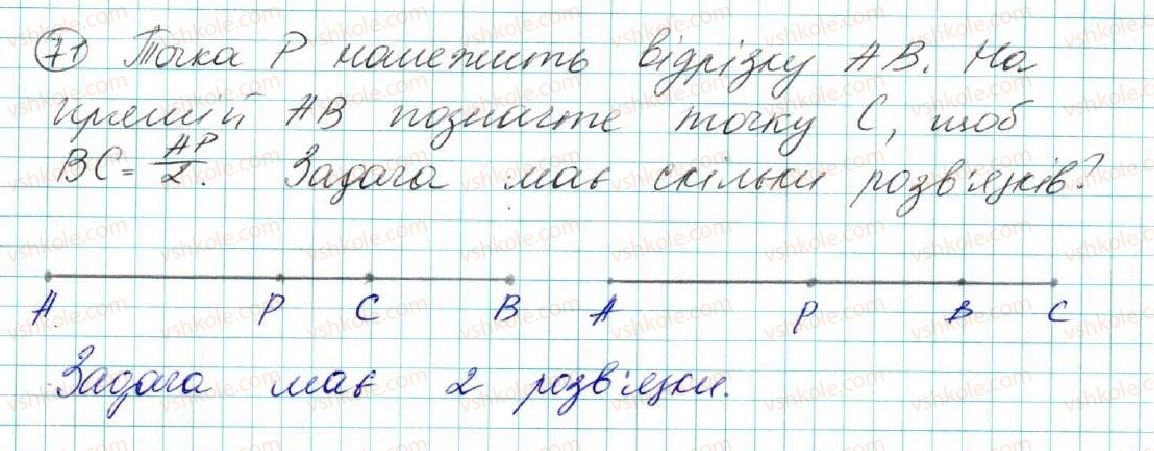 71 Точка P належить відрізку AB. На
прямій AB позначте точку C, щоб
BC = AP/2. Задача має скільки розв'язків?
A P C B A P B C
Задача має 2 розв'язки.